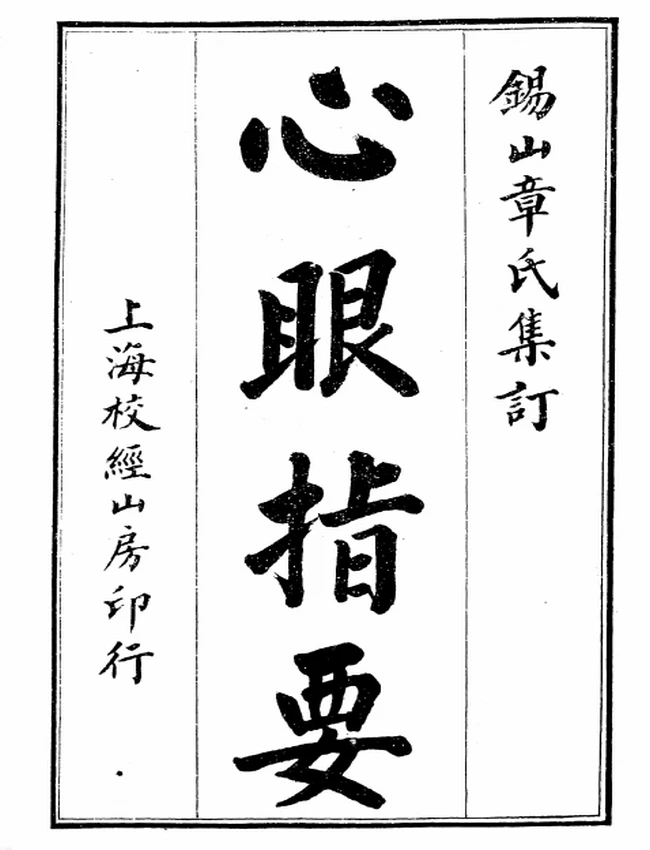 錫山章氏集訂
心眼指要
上海校經山房印行